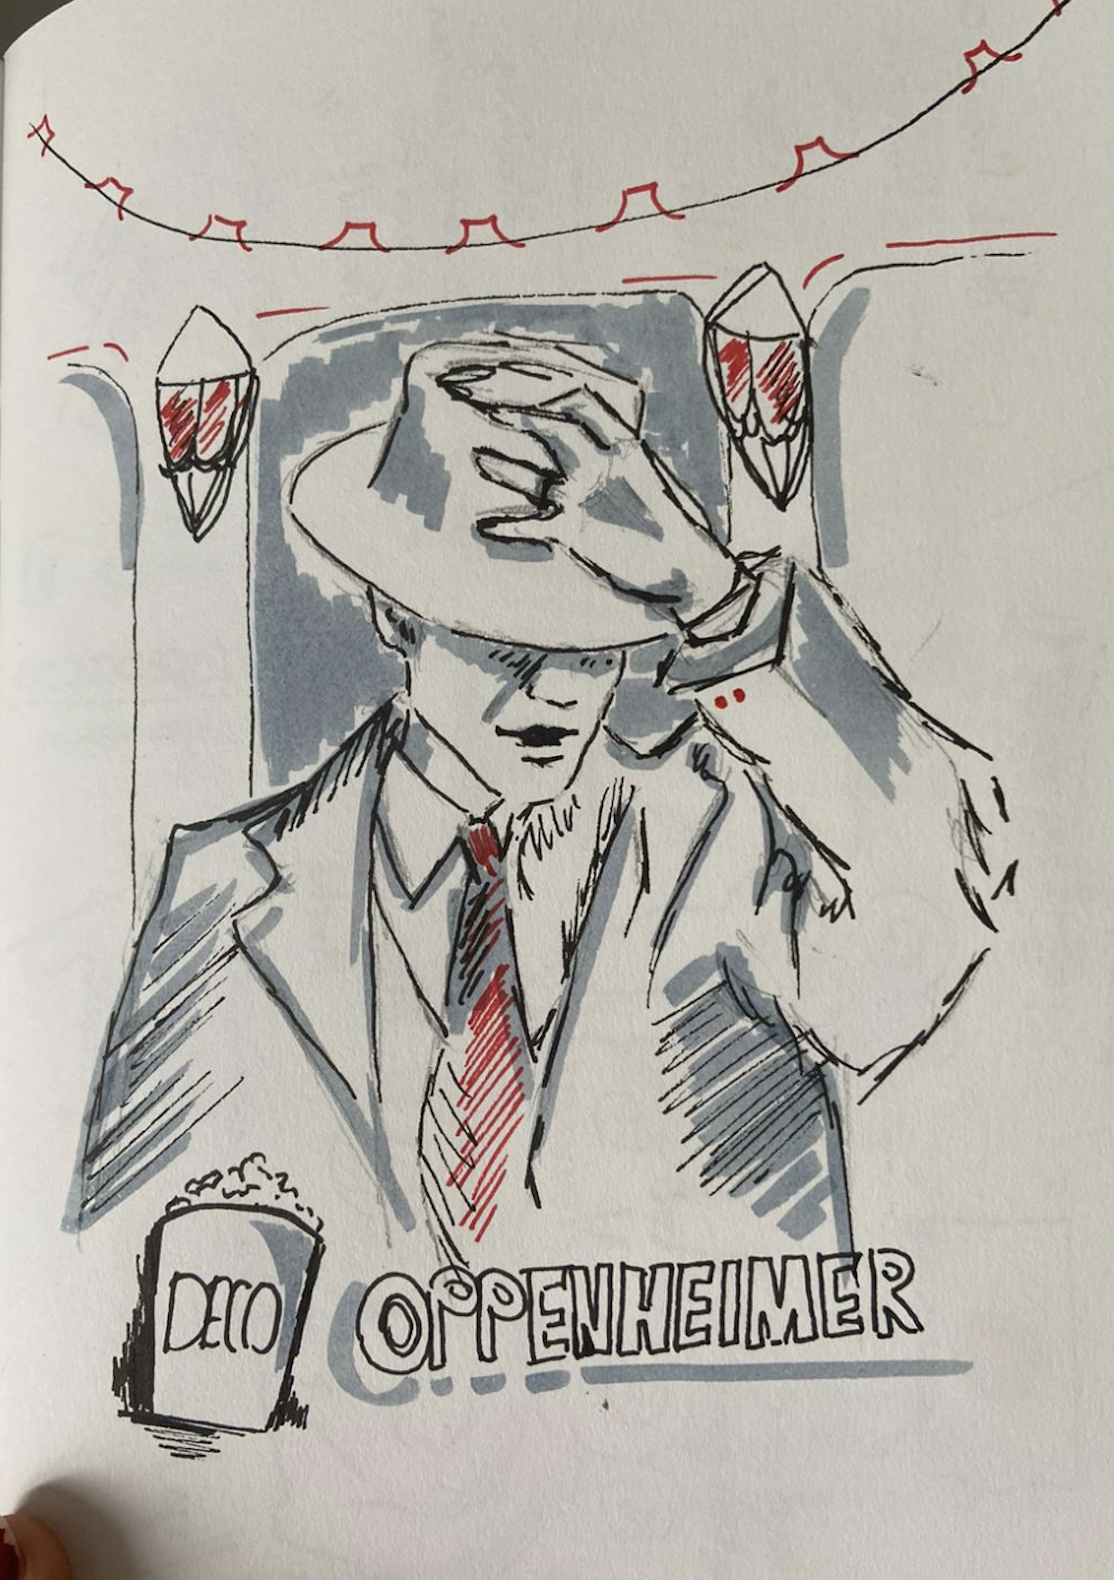 DECO
OPPENHEIMER